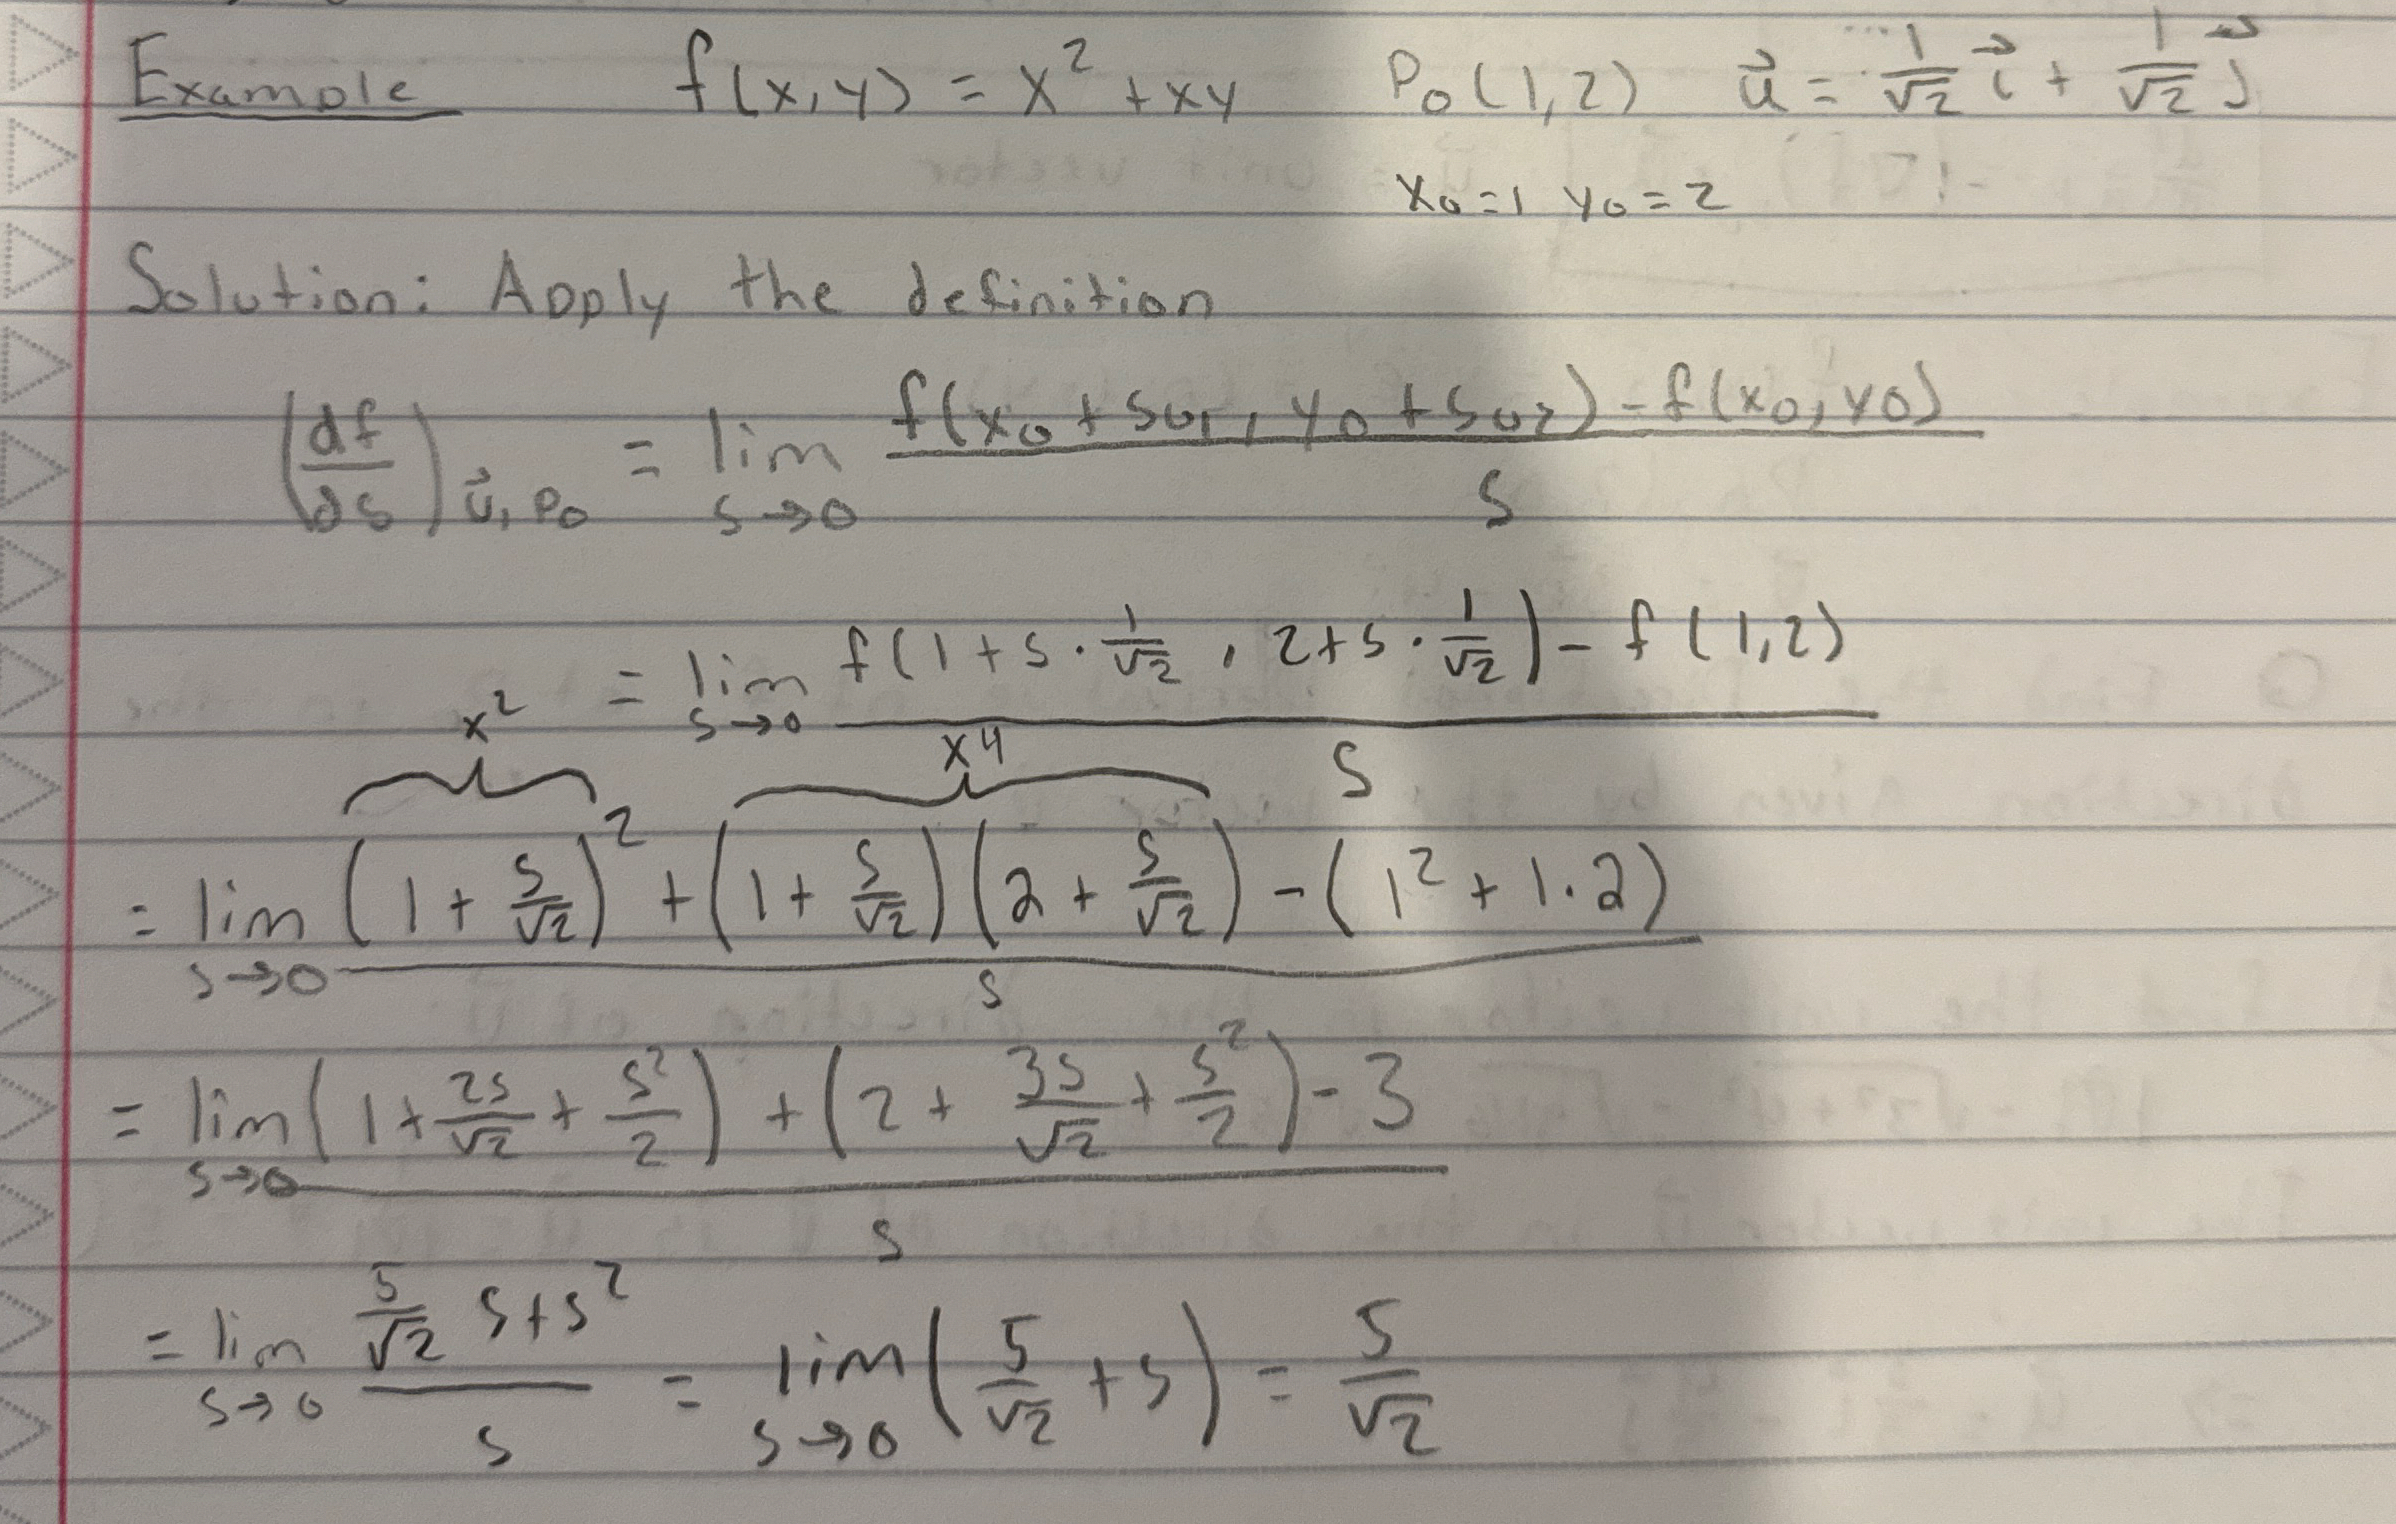 Example f(x,y) = x² + xy P₀(1,2) u⃗ = 1/√2 i⃗ + 1/√2 j⃗
x₀=1 y₀=2
Solution: Apply the definition
(df/ds) u⃗, P₀ = lim s→0 f(x₀ + su₁, y₀ + su₂) - f(x₀, y₀) / s
= lim s→0 f(1 + s · 1/√2 , 2+s · 1/√2) - f(1,2) / s
x² xy
= lim s→0 (1 + s/√2)² + (1 + s/√2)(2 + s/√2) - (1² + 1·2) / s
= lim s→0 (1 + 2s/√2 + s²/2) + (2 + 3s/√2 + s²/2) - 3 / s
= lim s→0 5/√2 s + s² / s = lim s→0 (5/√2 + s) = 5/√2